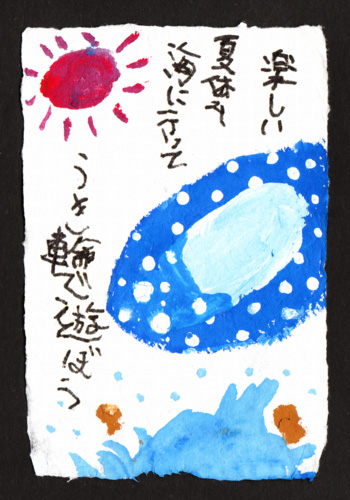 楽しい
夏休み
海に行って
うき輪で遊ぼう